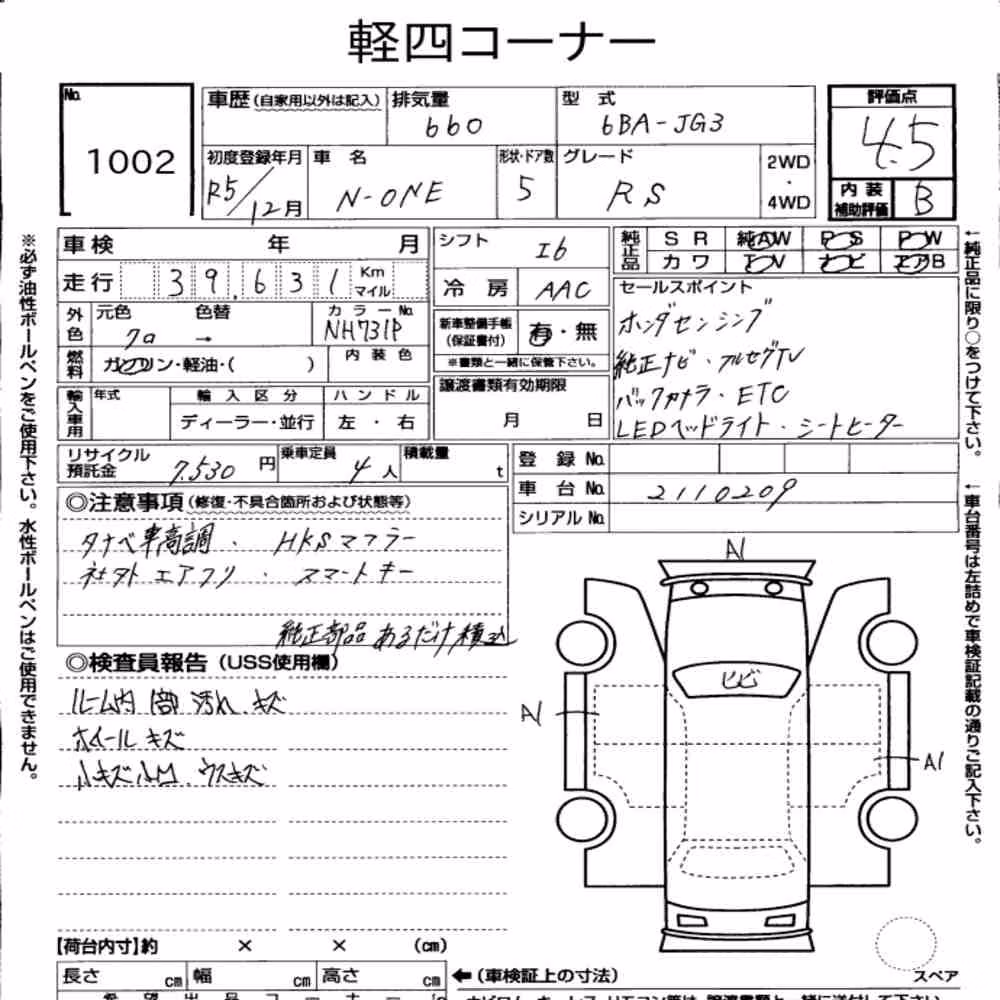 軽四コーナー
No. 1002
車歴(自家用以外は記入) 排気量 660 型式 6BA-JG3 評価点 4.5
初度登録年月 R5/12月 車名 N-ONE 形状・ドア数 5 グレード RS 2WD・4WD 内装補助評価 B
車検 年 月 シフト I6 純正品 SR 純AW PS PW
カワ TV ナビ エアB
走行 39,631 Km マイル 冷房 AAC セールスポイント
外色 元色 クロ 色替 → カラーNo. NH731P 新車整備手帳(保証書付) 有・無
ホンダセンシング
燃料 ガソリン・軽油・( ) 内装色 ※書類と一緒に保管下さい。
純正ナビ・フルセグTV
輸入車用 年式 輸入区分 ハンドル 譲渡書類有効期限
バックカメラ・ETC
ディーラー・並行 左・右 月 日
LEDヘッドライト・シートヒーター
リサイクル預託金 7,530円 乗車定員 4人 積載量 t 登録No.
車台No. 2110209
シリアルNo.
◎注意事項(修復・不具合箇所および状態等)
タナベ車高調・HKSマフラー
社外エアクリ・スマートキー
純正部品あるだけ積込
◎検査員報告(USS使用欄)
ルーム内 汚れ、キズ
ホイールキズ
小キズ小凹、ウスキズ
A1
ヒビ
A1
A1
【荷台内寸】約 × × (cm)
長さ cm 幅 cm 高さ cm ←(車検証上の寸法)
スペア
※必ず油性ボールペンをご使用下さい。水性ボールペンはご使用できません。
←純正品に限り○をつけて下さい。
←車台番号は左詰めで車検証記載の通りご記入下さい。